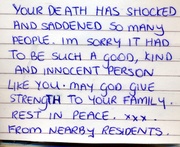 YOUR DEATH HAS SHOCKED
AND SADDENED SO MANY
PEOPLE. IM SORRY IT HAD
TO BE SUCH A GOOD, KIND
AND INNOCENT PERSON
LIKE YOU. MAY GOD GIVE
STRENGTH TO YOUR FAMILY.
REST IN PEACE. xxx.
FROM NEARBY RESIDENTS.